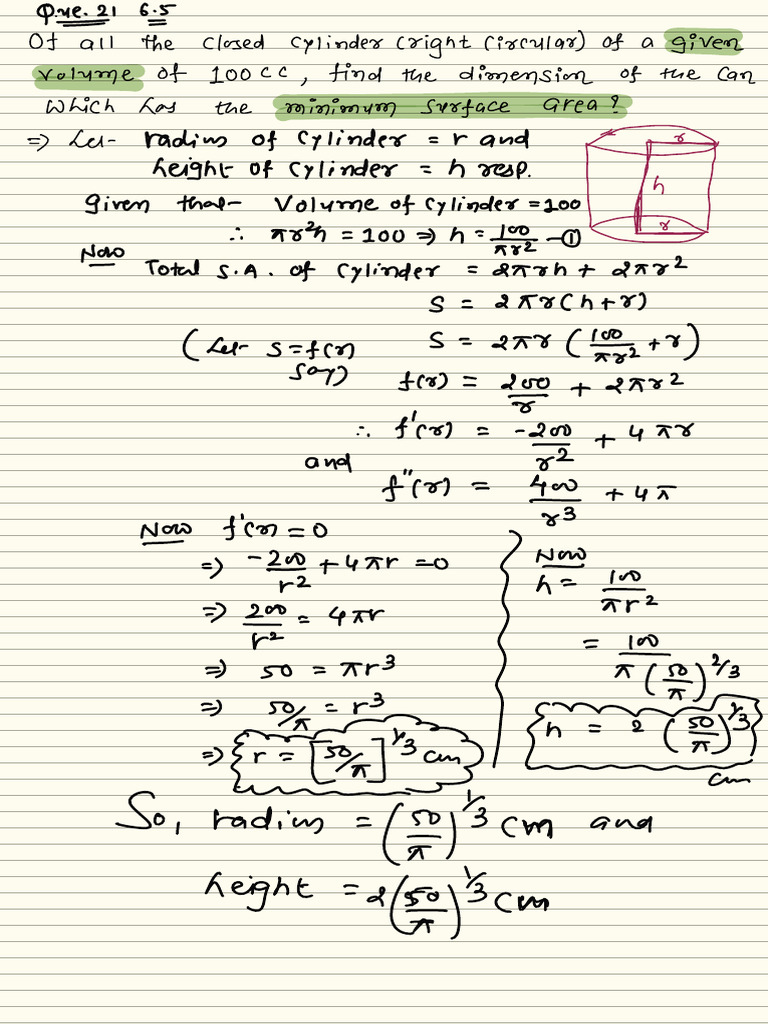 Que. 21 6.5
Of all the closed cylinder (right circular) of a given
volume of 100cc, find the dimension of the can
which has the minimum surface area?
⇒ Let radius of cylinder = r and
height of cylinder = h resp.
r
h
r
Given that Volume of cylinder = 100
∴ πr²h = 100 ⇒ h = 100/πr² —①
Now
Total S.A. of cylinder = 2πrh + 2πr²
S = 2πr(h+r)
(Let S = f(r) say)
S = 2πr (100/πr² + r)
f(r) = 200/r + 2πr²
∴ f'(r) = -200/r² + 4πr
and
f''(r) = 400/r³ + 4π
Now f'(r) = 0
⇒ -200/r² + 4πr = 0
⇒ 200/r² = 4πr
⇒ 50 = πr³
⇒ 50/π = r³
⇒ r = [50/π]^1/3 cm
Now
h = 100/πr²
= 100/π(50/π)^2/3
h = 2 (50/π)^1/3
cm
So, radius = (50/π)^1/3 cm and
height = 2(50/π)^1/3 cm